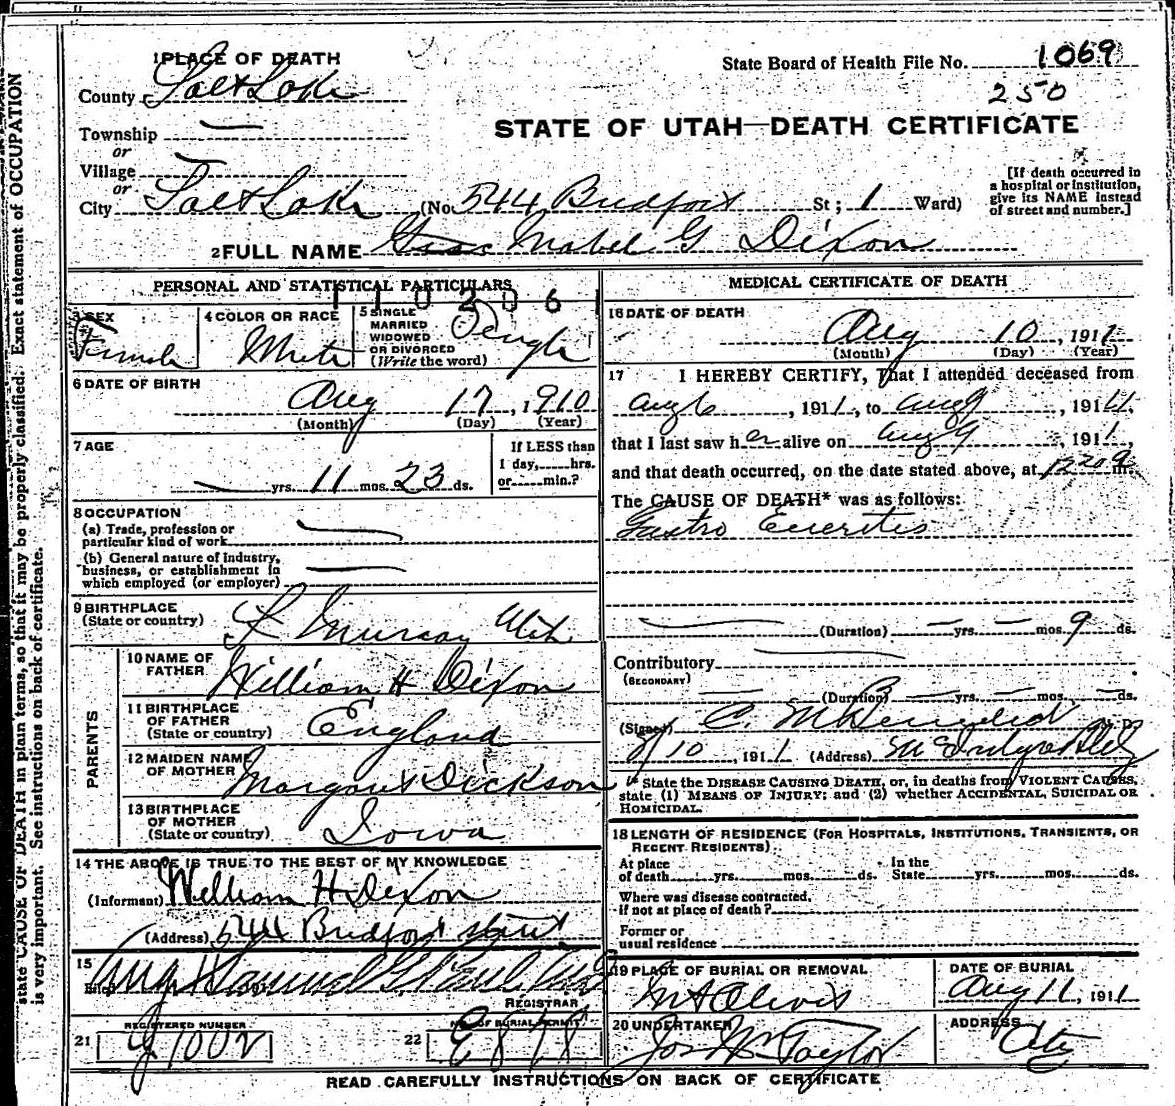 1 PLACE OF DEATH
County Salt Lake
Township —
or
Village —
or
City Salt Lake (No. 544 St; 1 Ward)
State Board of Health File No. 1069
250
STATE OF UTAH—DEATH CERTIFICATE
[If death occurred in
a hospital or institution,
give its NAME instead
of street and number.]
2 FULL NAME Mabel G Dixon
PERSONAL AND STATISTICAL PARTICULARS
1102061
3 SEX
Female
4 COLOR OR RACE
White
5 SINGLE
MARRIED
WIDOWED
OR DIVORCED
(Write the word)
Single
6 DATE OF BIRTH
Aug 17, 1910
(Month) (Day) (Year)
7 AGE
— yrs. 11 mos. 23 ds.
If LESS than
1 day, hrs.
or min.?
8 OCCUPATION
(a) Trade, profession or
particular kind of work —
(b) General nature of industry,
business, or establishment in
which employed (or employer) —
9 BIRTHPLACE
(State or country)
Murray Utah
PARENTS
10 NAME OF
FATHER
William H Dixon
11 BIRTHPLACE
OF FATHER
(State or country)
England
12 MAIDEN NAME
OF MOTHER
Margaret Dickson
13 BIRTHPLACE
OF MOTHER
(State or country)
Iowa
14 THE ABOVE IS TRUE TO THE BEST OF MY KNOWLEDGE
(Informant) William H Dixon
(Address) 544 street
15
Filed Aug
REGISTRAR
REGISTERED NUMBER
21
22
NO. OF BURIAL PERMIT
E 878
MEDICAL CERTIFICATE OF DEATH
16 DATE OF DEATH
Aug 10, 1911
(Month) (Day) (Year)
17 I HEREBY CERTIFY, That I attended deceased from
Aug 6, 1911, to Aug 9, 1911,
that I last saw her alive on Aug 9, 1911,
and that death occurred, on the date stated above, at 1220a m.
The CAUSE OF DEATH* was as follows:
Gastro Enteritis
— (Duration) — yrs. — mos. 9 ds.
Contributory —
(SECONDARY)
— (Duration) — yrs. — mos. — ds.
(Signed) C. M. Benedict M. D.
8/10, 1911 (Address)
* State the DISEASE CAUSING DEATH, or, in deaths from VIOLENT CAUSES,
state (1) MEANS OF INJURY; and (2) whether ACCIDENTAL, SUICIDAL OR
HOMICIDAL.
18 LENGTH OF RESIDENCE (FOR HOSPITALS, INSTITUTIONS, TRANSIENTS, OR
RECENT RESIDENTS).
At place
of death yrs. mos. ds.
In the
State yrs. mos. ds.
Where was disease contracted,
if not at place of death?
Former or
usual residence
19 PLACE OF BURIAL OR REMOVAL
Mt Olivet
DATE OF BURIAL
Aug 11, 1911
20 UNDERTAKER
Jos Wm Taylor
ADDRESS
City
READ CAREFULLY INSTRUCTIONS ON BACK OF CERTIFICATE
state CAUSE OF DEATH in plain terms, so that it may be properly classified. Exact statement of OCCUPATION
is very important. See instructions on back of certificate.